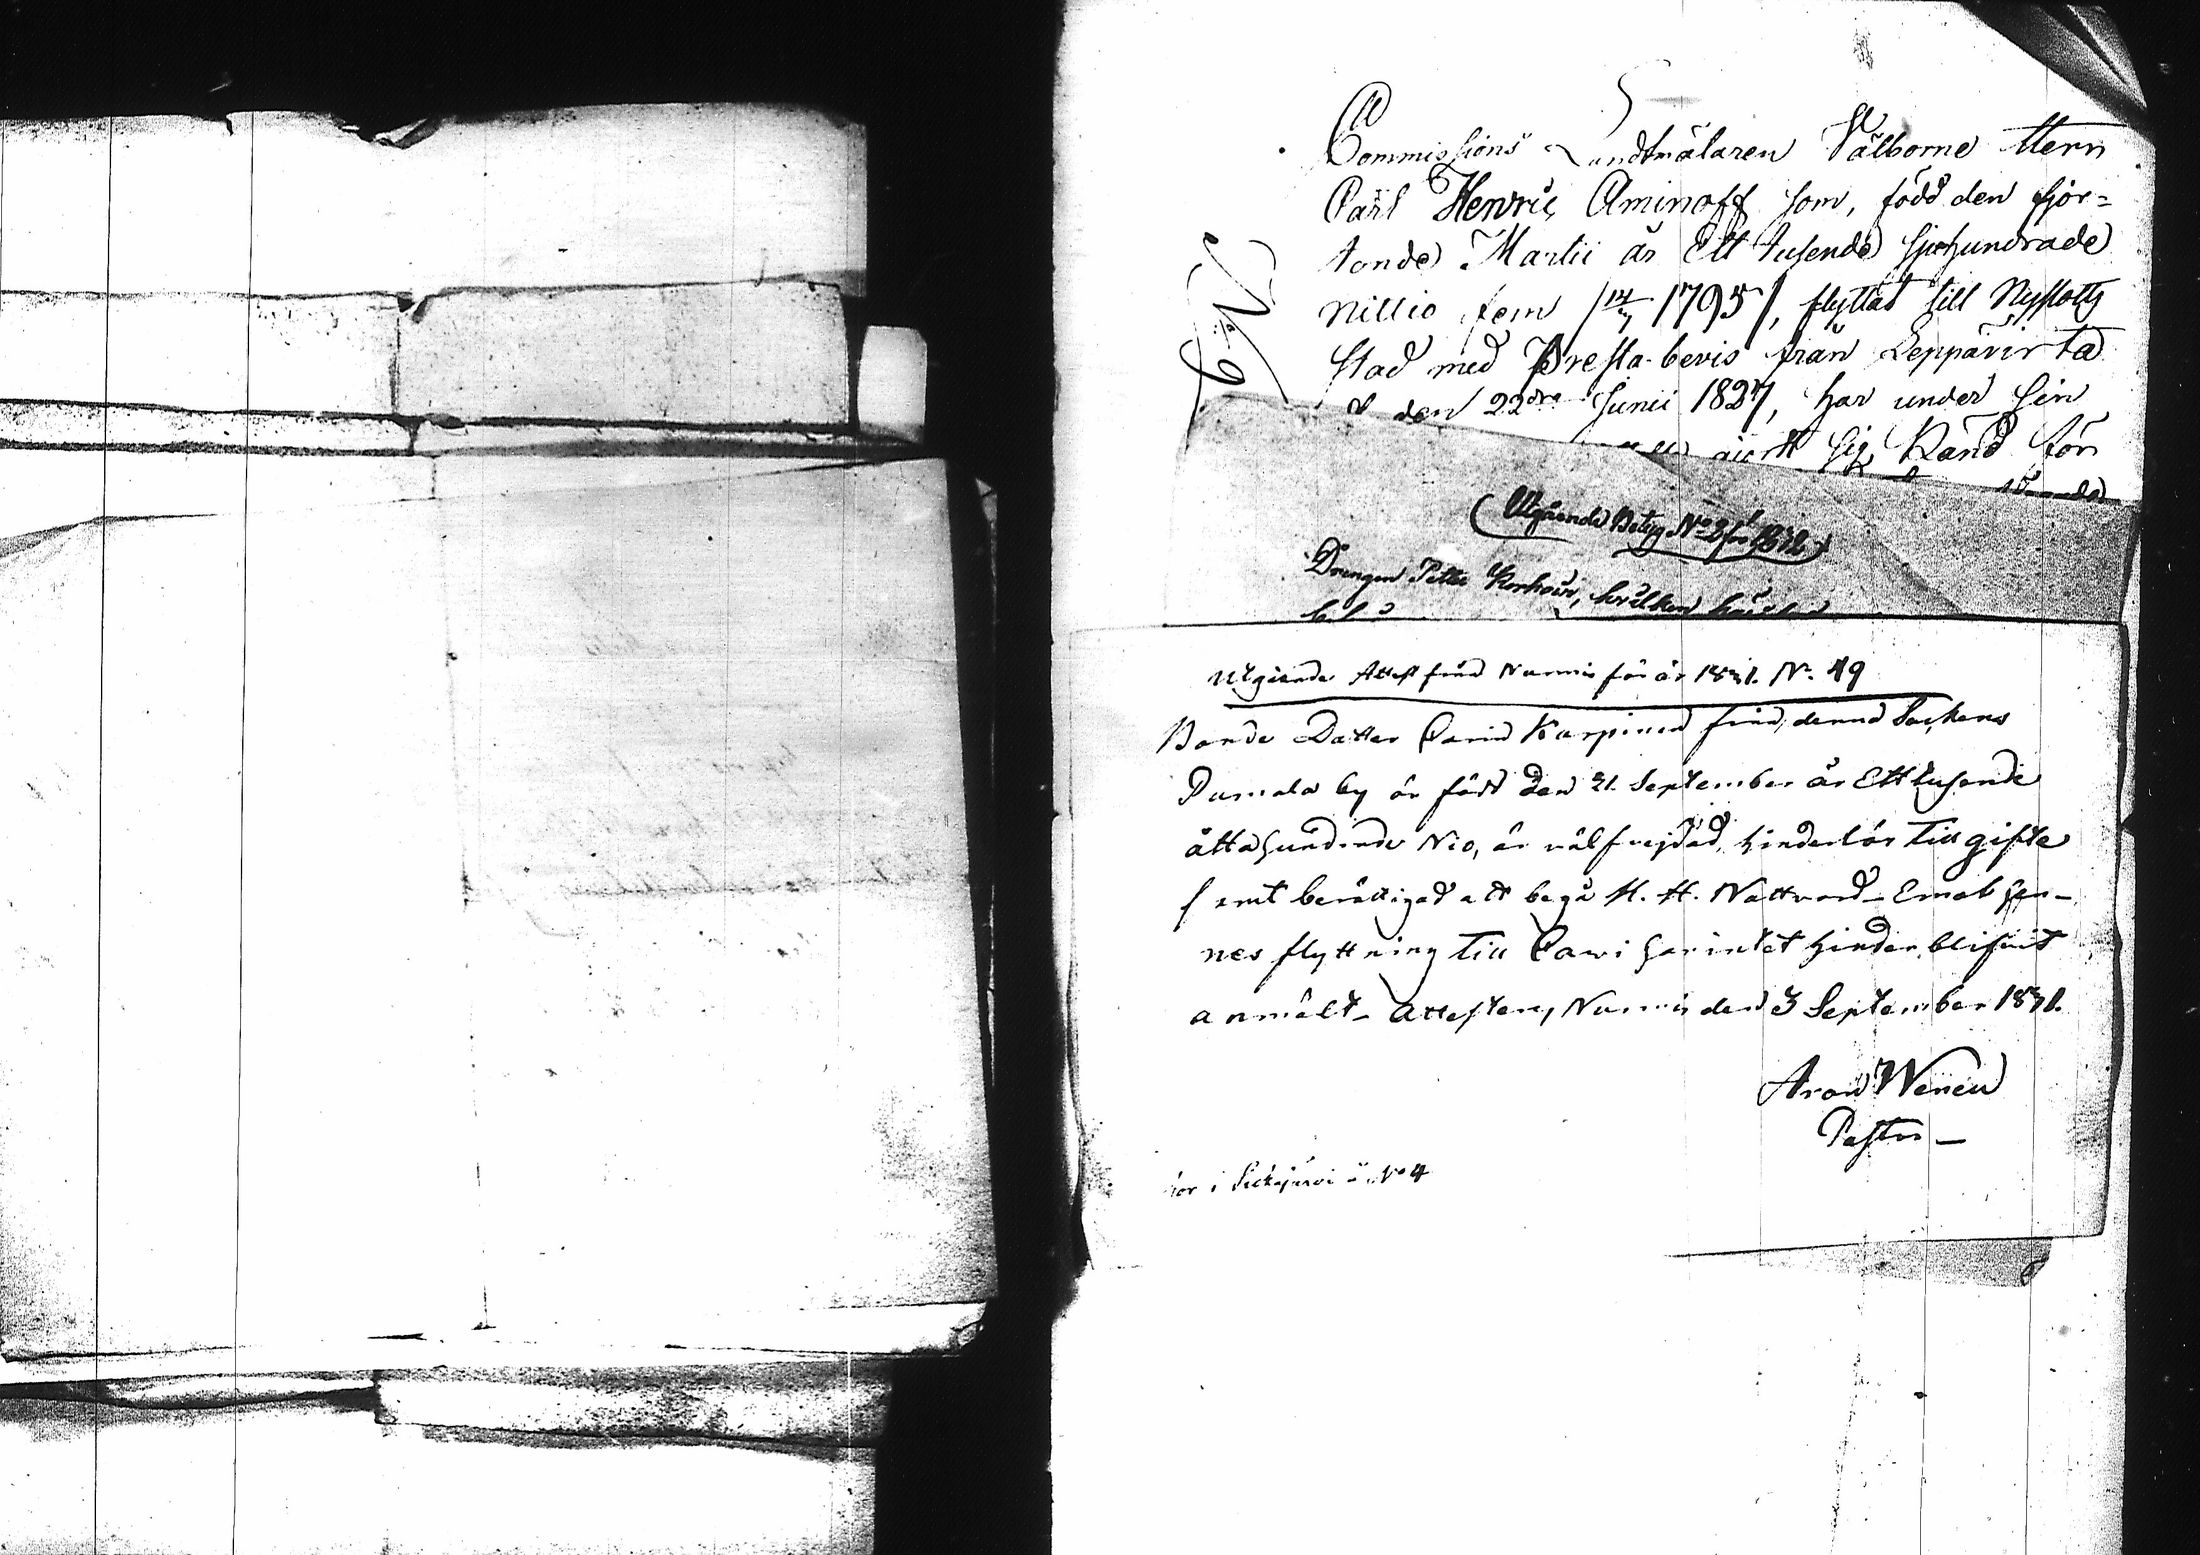 Commissions Landtmälaren Välborne Herr
Carl Henric Aminoff som, född den fjor=
tonde Martii år Ett tusende sjuhundrade
nittio fem /14/3 1795/, flyttat till Nyslotts
stad med Presta-bevis från Leppävirta
den 22dra Junii 1827, har under sin
gjort sig känd för
(Utgående Betyg No 2 för 1832)
Drengen Petter Korhoin, hvilken
Utgående Attest från Nurmis för år 1831. No. 49
Bonde Dotter Carin Karpinen från denna Sockens
Pumala by är född den 21. September år Ett tusende
åttahundrade Nio, är välfrejdad, hinderlös till gifte
samt berättigad att begå H. H. Nattvard_ Emot hen_
nes flyttning till Pawi har intet hinder blifvit
anmält_ Attesterar, Nurmis den 3 September 1831.
Aron Weneu
Pastor_
i No 4